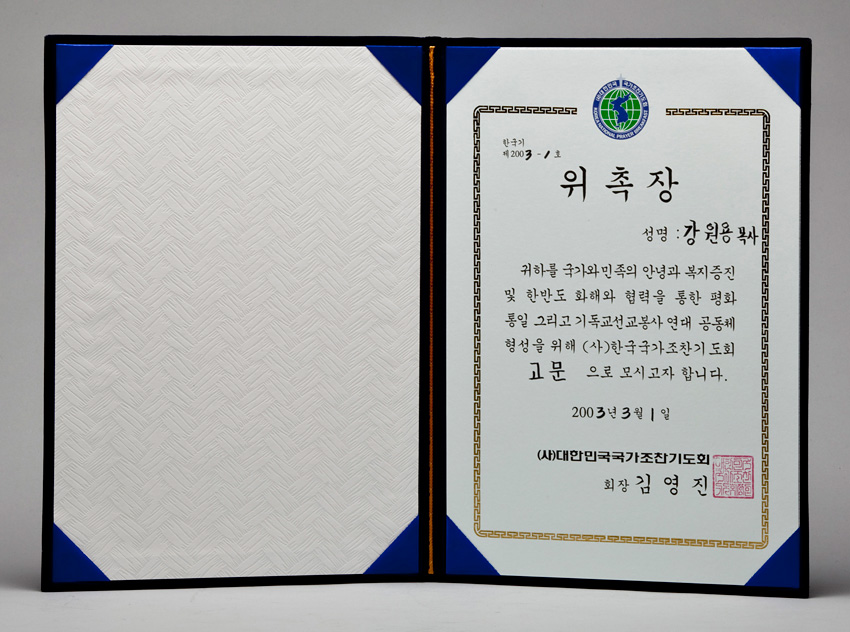 KOREA NATIONAL PRAYER BREAKFAST
한국기
제2003-1호
위촉장
성명 : 강원용 목사
귀하를 국가와 민족의 안녕과 복지증진
및 한반도 화해와 협력을 통한 평화
통일 그리고 기독교선교봉사 연대 공동체
형성을 위해 (사)한국국가조찬기도회
고문 으로 모시고자 합니다.
2003년 3월 1일
(사)대한민국국가조찬기도회
회장 김영진